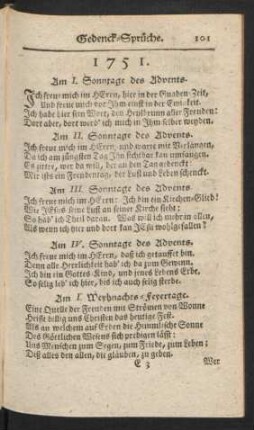 Gedenck-Sprüche. 101
1751.
Am I. Sonntage des Advents.
Ich freue mich im HErrn, hier in der Gnaden-Zeit,
Und freue mich vor Ihm einst in der Ewigkeit.
Ich habe hier sein Wort, den Heilbrunn aller Freuden!
Dort aber, dort werd' ich mich in Ihm selber weyden.
Am II. Sonntage des Advents.
Ich freue mich im HErrn, und warte mit Verlangen,
Da ich am jüngsten Tag Ihn sichtbar kan umfangen.
Es zittre, wer da will, das an den Tag
Mir ists ein Freudentag, der Lust und Leben schenckt.
Am III. Sonntage des Advents.
Ich freue mich im HErrn! Ich bin ein Kirchen-Glied!
Wie JEsus seine Lust an seiner Kirche sieht;
So hab' ich Theil daran. Was will ich mehr in allen,
Als wenn ich hier und dort kan JEsu wohlgefallen?
Am IV. Sonntage des Advents.
Ich freue mich im HErrn, daß ich getauffet bin.
Denn alle Herrlichkeit hab' ich da zum Gewinn.
Ich bin ein Gottes-Kind, und jenes Lebens Erbe.
So selig leb' ich hier, bis ich auch selig sterbe.
Am I. Weyhnachts-Feyertage.
Eine Quelle der Freuden mit Strömen von Wonne
Heißt billig uns Christen das heutige Fest.
Als an welchem auf Erden die Himmlische Sonne
Des Göttlichen Wesens sich predigen lässt:
Uns Menschen zum Segen, zum Friede, zum Leben;
Diß alles den allen, die gläuben, zu geben.
E 3 Wer